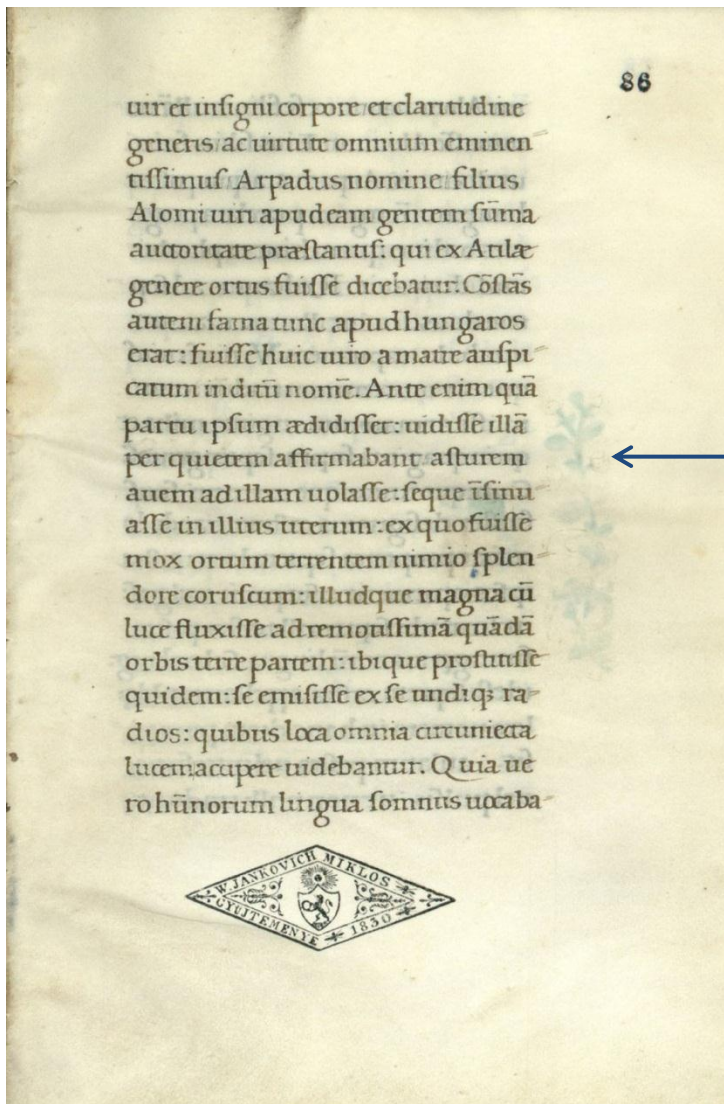 86
uir et insigni corpore et claritudine
generis ac uirtute omnium eminen
tissimus Arpadus nomine filius
Alomi uiri apud eam gentem sūma
auctoritate præstantis: qui ex Atilæ
genere ortus fuisse dicebatur. Cōstās
autem fama tunc apud hungaros
erat: fuisse huic uiro a matre auspi
catum inditū nomē. Ante enim quā
partu ipsum ædidisset: uidisse illā
per quietem affirmabant asturem
auem ad illam uolasse: seque īsinu
asse in illius uterum: ex quo fuisse
mox ortum terrentem nimio splen
dore coruscum: illudque magna cū
luce fluxisse ad remotissimā quādā
orbis terre partem: ibique prostitisse
quidem: se emisisse ex se undiq; ra
dios: quibus loca omnia circuniecta
lucem accipere uidebantur. Quia ue
ro hūnorum lingua somnus uocaba
W. JANKOVICH MIKLOS
GYUJTEMENYE 1830